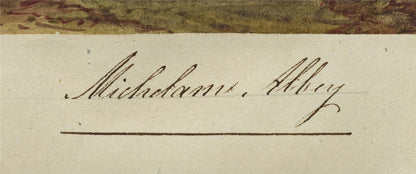 Michelams Abbey